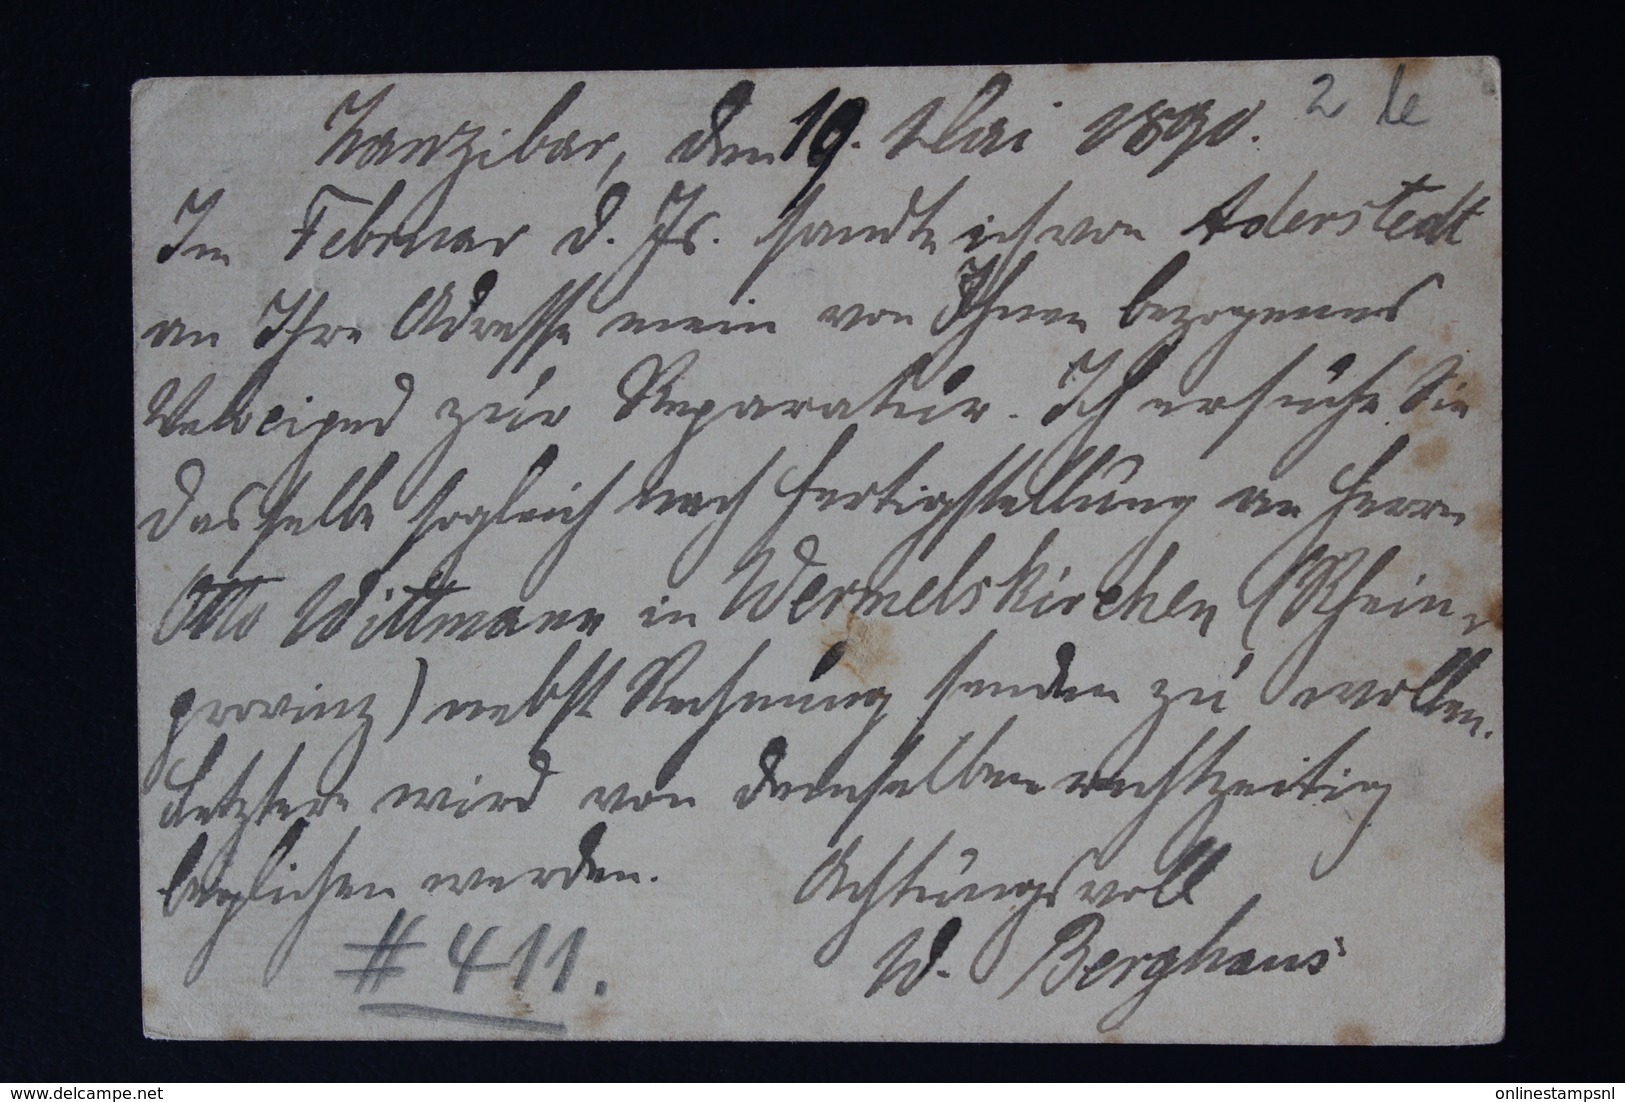 Zanzibar, den 19. Mai 1890.
2 le
Im Februar d. Js. sandte ich von Aderstedt
an Ihre Adresse mein von Ihnen bezogenes
Velociped zur Reparatur. Ich ersuche Sie
dasselbe sogleich nach Fertigstellung an Herrn
Otto Wittmann in Wermelskirchen (Rhein-
provinz) nebst Rechnung senden zu wollen.
Letztere wird von demselben rechtzeitig
beglichen werden.
Achtungsvoll
W. Berghaus
# 411.
Delcampe.net
onlinestampsnl